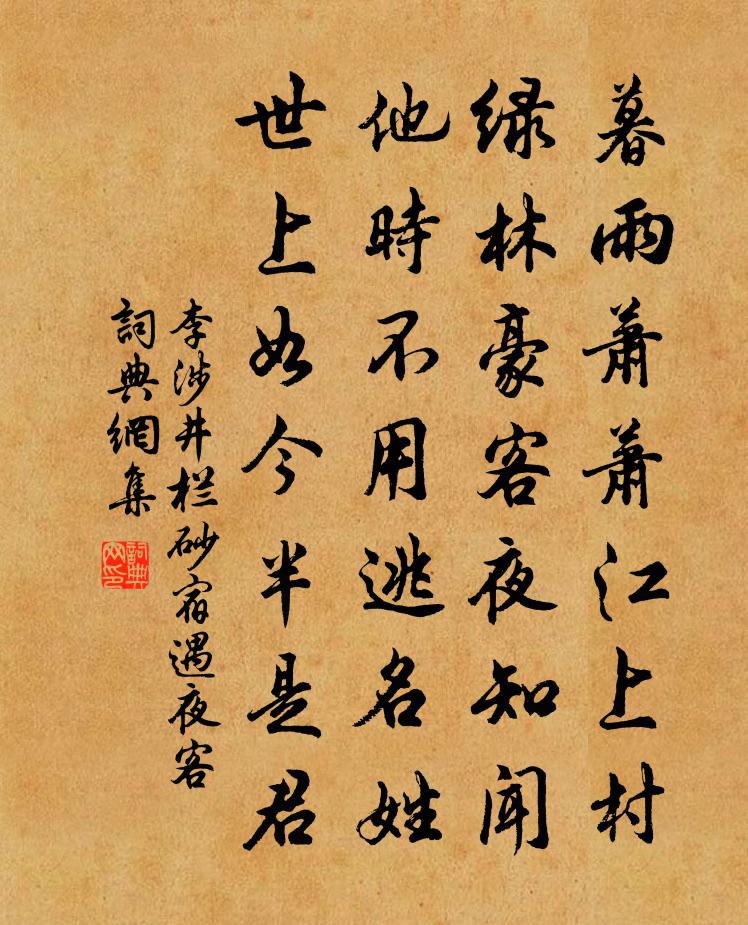 暮雨萧萧江上村
绿林豪客夜知闻
他時不用逃名姓
世上如今半是君
李涉井栏砂宿遇夜客
詞典網集
詞典网印